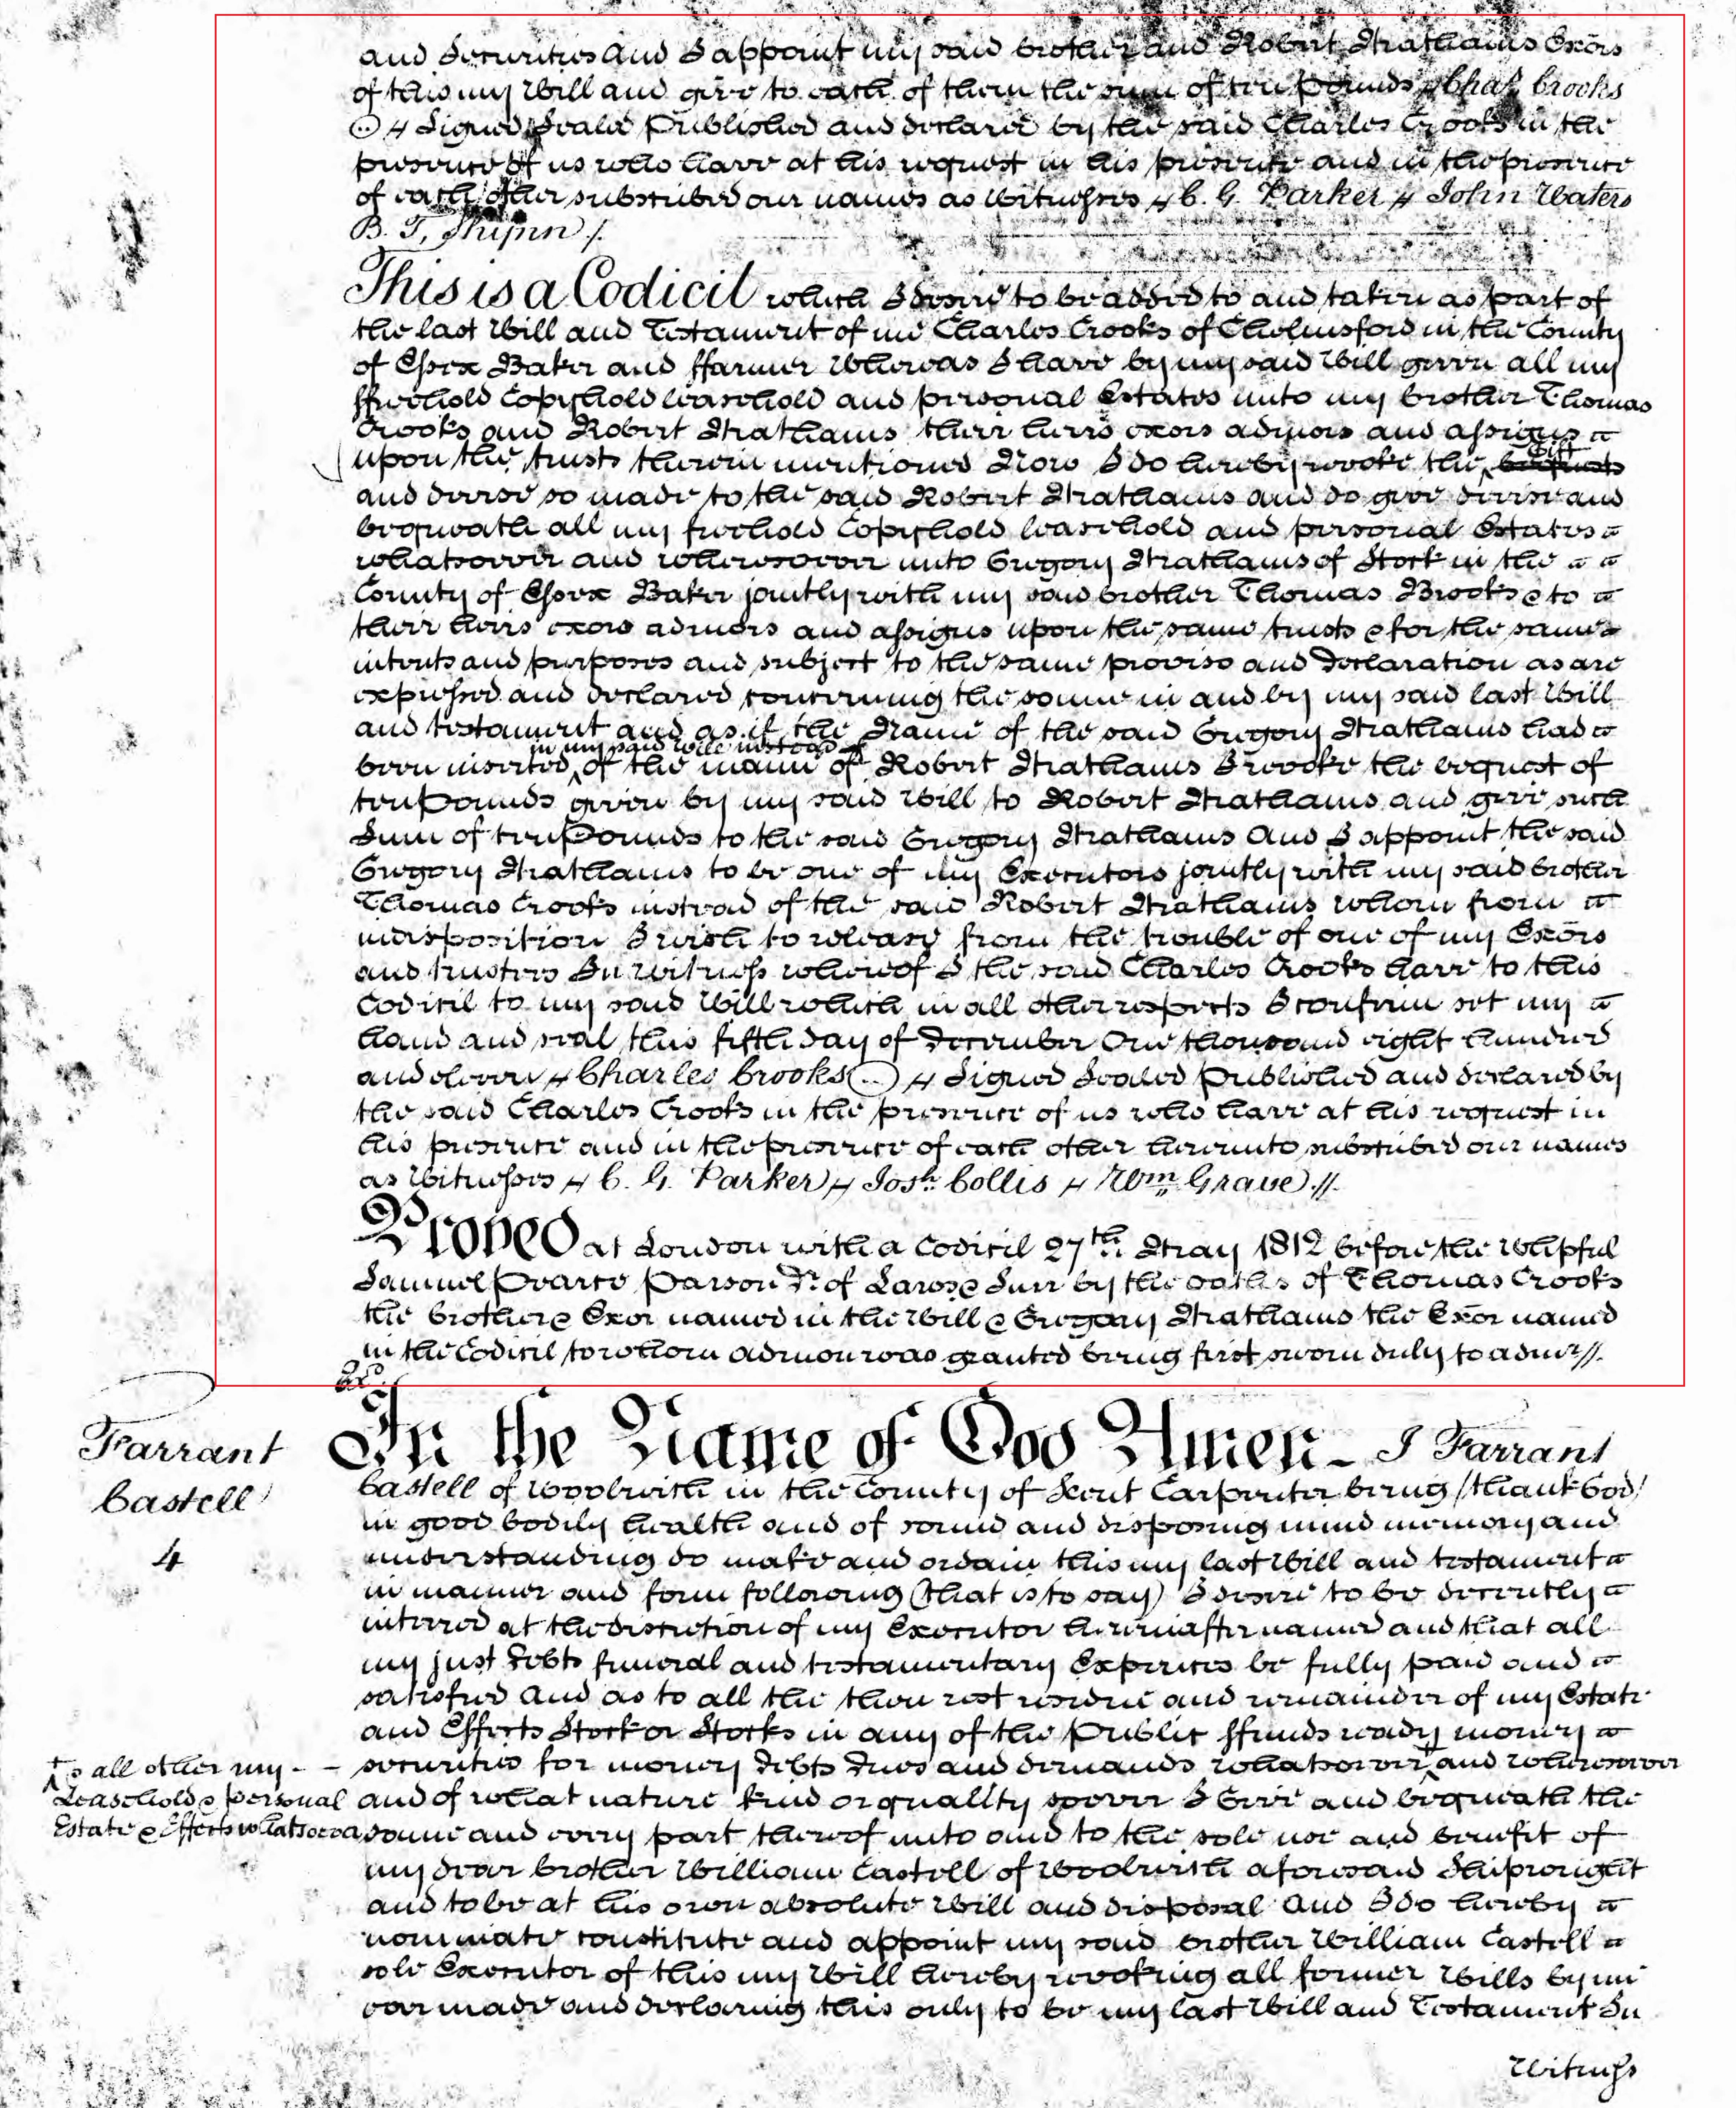 and Securities And I appoint my said brother and Robert Mathams Exors
of this my Will and give to each of them the sum of ten Pounds // Chas. Crooks
// Signed Seald Published and declared by the said Charles Crooks in the
presence of us who have at his request in his presence and in the presence
of each other subscribed our names as Witnesses // C. G. Parker // John Waters
B. T.
This is a Codicil which I desire to be added to and taken as part of
the last Will and Testament of me Charles Crooks of Chelmsford in the County
of Essex Baker and ffarmer Whereas I have by my said Will given all my
ffreehold Copyhold leasehold and personal Estates unto my brother Thomas
Crooks and Robert Mathams their heirs exors admors and assigns
upon the trusts therein mentioned Now I do hereby revoke the Gift
and devise so made to the said Robert Mathams and do give devise and
bequeath all my freehold Copyhold leasehold and personal Estates
whatsoever and wheresoever unto Gregory Mathams of Stock in the
County of Essex Baker jointly with my said brother Thomas Brooks & to
their heirs exors admors and assigns upon the same trusts & for the same
intents and purposes and subject to the same proviso and Declaration as are
expressed and declared concerning the same in and by my said last Will
and testament and as if the Name of the said Gregory Mathams had
been inserted in my said will instead of the name of Robert Mathams I revoke the bequest of
ten Pounds given by my said Will to Robert Mathams and give such
Sum of ten Pounds to the said Gregory Mathams And I appoint the said
Gregory Mathams to be one of my Executors jointly with my said brother
Thomas Crooks instead of the said Robert Mathams whom from
indisposition I wish to release from the trouble of one of my Exors
and trustees In Witness whereof I the said Charles Crooks have to this
Codicil to my said Will which in all other respects I confirm set my
hand and seal this fifth day of December One thousand eight hundred
and eleven // Charles Crooks // Signed Sealed Published and declared by
the said Charles Crooks in the presence of us who have at his request in
his presence and in the presence of each other hereunto subscribed our names
as Witnesses // C. G. Parker // Josh. Collis // Wm. Grave //
Proved at London with a Codicil 27th May 1812 before the Wshipful
Samuel Pearce Parson Dr. of Laws & Surr by the oaths of Thomas Crooks
the brother & Exor named in the Will & Gregory Mathams the Exor named
in the Codicil to whom admon was granted being first sworn duly to admr //.
Farrant
Castell
4
In the Name of God Amen - I Farrant
Castell of Woolwich in the County of Kent Carpenter being (thank God)
in good bodily health and of sound and disposing mind memory and
understanding do make and ordain this my last Will and testament
in manner and form following (that is to say) I desire to be decently
interred at the discretion of my Executor hereinafter named and that all
my just Debts funeral and testamentary Expences be fully paid and
satisfied And as to all the then rest residue and remainder of my Estate
and Effects Stock or Stocks in any of the Public ffunds ready money
securities for money Debts Dues and demands whatsoever and wheresoever
to all other my - -
Leasehold & personal
Estate & Effects whatsoever
and of what nature kind or quallity soever I Give and bequeath the
same and every part thereof unto and to the sole use and benefit of
my dear brother William Castell of Woolwich aforesaid Shipwright
and to be at his own absolute Will and disposal And I do hereby
nominate constitute and appoint my said brother William Castell
sole Executor of this my Will hereby revoking all former Wills by me
ever made and declaring this only to be my last Will and Testament In
Witness